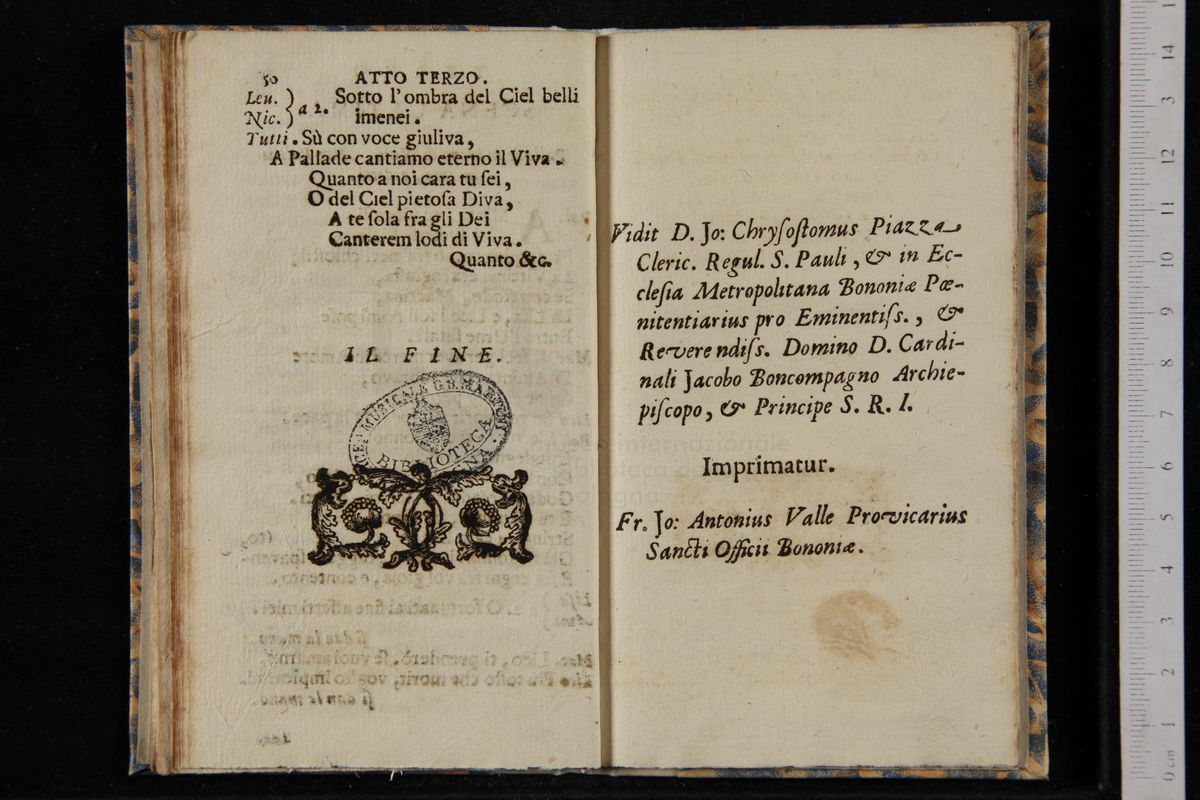 50 ATTO TERZO.
Leu. ) a 2. Sotto l'ombra del Ciel belli
Nic. ) imenei.
Tutti. Sù con voce giuliva,
A Pallade cantiamo eterno il Viva.
Quanto a noi cara tu ſei,
O del Ciel pietoſa Diva,
A te ſola fra gli Dei
Canterem lodi di Viva.
Quanto &c.
IL FINE.
LICEO MUSICALE G.B. MARTINI
BIBLIOTECA
Vidit D. Jo: Chryſoſtomus Piazza
Cleric. Regul. S. Pauli, & in Ec-
cleſia Metropolitana Bononiæ Pœ-
nitentiarius pro Eminentiſſ., &
Reverendiſſ. Domino D. Cardi-
nali Jacobo Boncompagno Archie-
piſcopo, & Principe S. R. I.
Imprimatur.
Fr. Jo: Antonius Valle Provicarius
Sancti Officii Bononiæ.